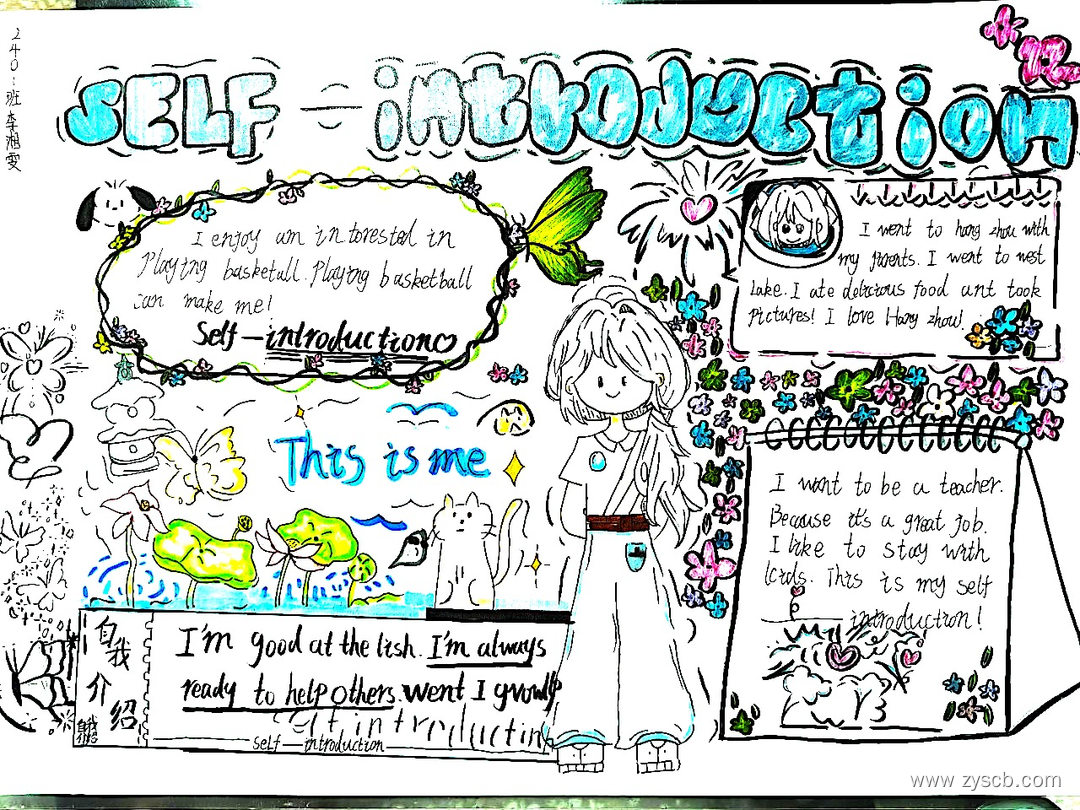 2401班李湘雯
SELF-introduction
I enjoy am interested in
Playing basketall. Playing basketball
can make me!
Self-introduction
I went to hang zhou with
my parents. I went to west
Lake. I ate delicious food ant took
pictures! I love Hang zhou!
This is me
I want to be a teacher.
Because it's a great job.
I like to stay with
kids. This is my self
introduction!
自我介绍
I'm good at the lish. I'm always
ready to help others. went I grow up
self-introduction
www.zyscb.com